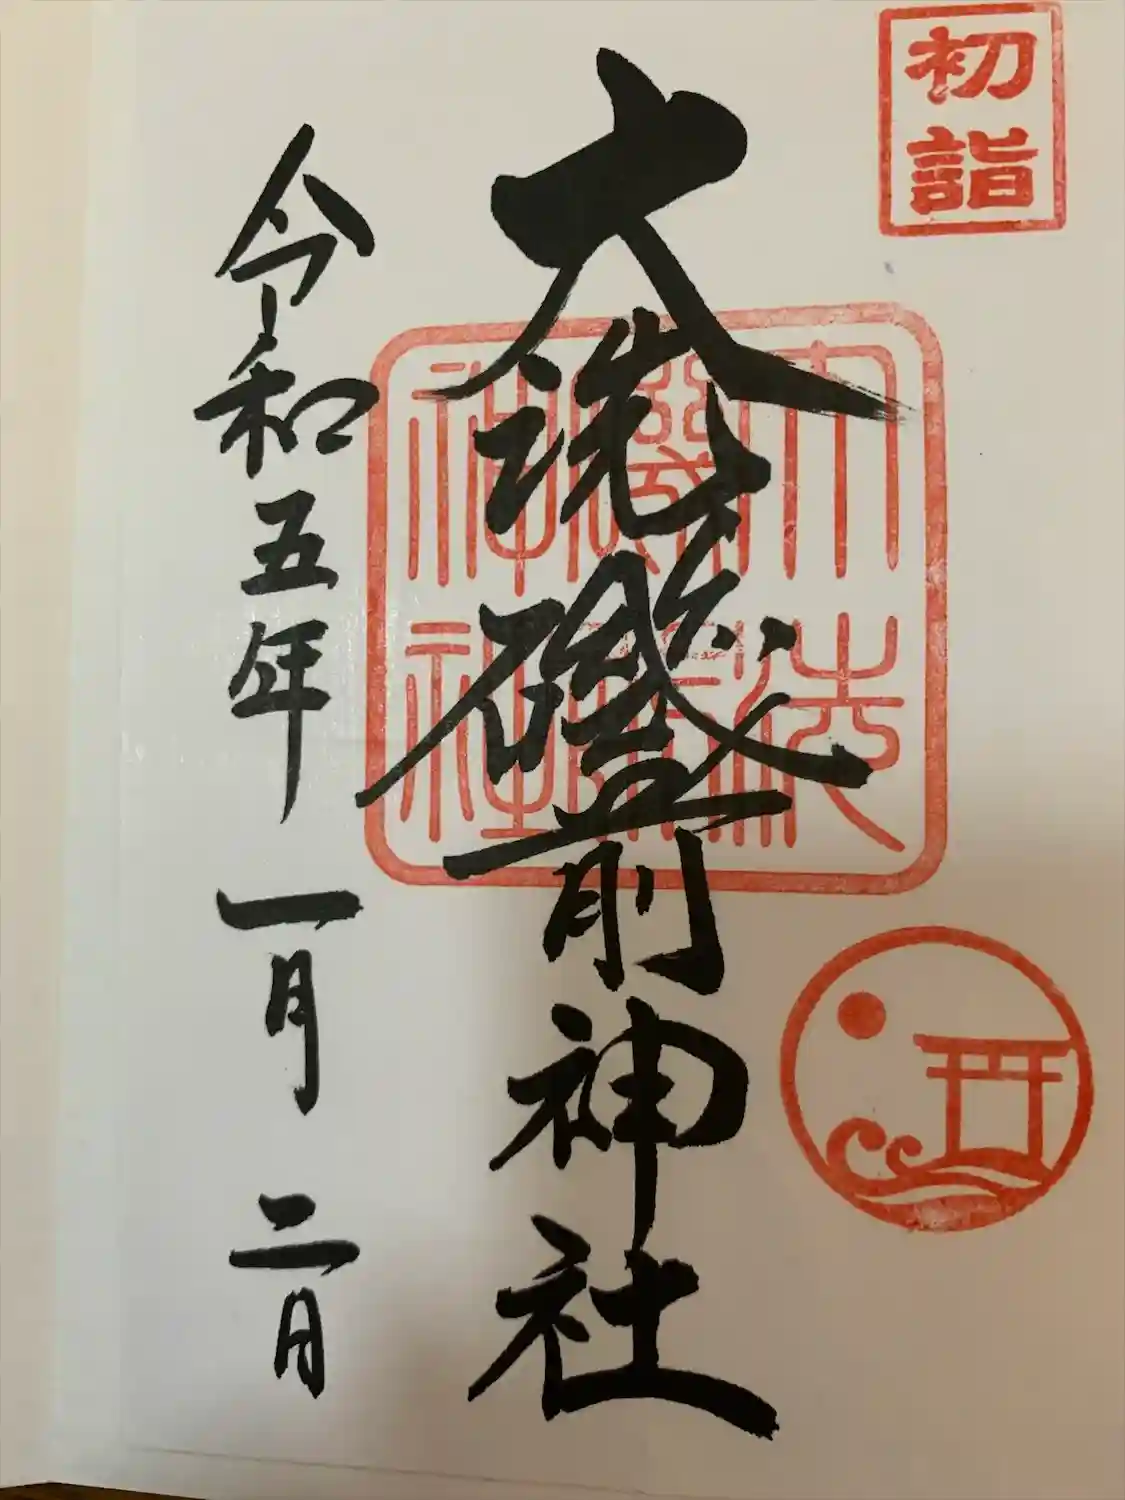 初詣
大洗磯前神社
大洗磯前神社
令和五年一月二日